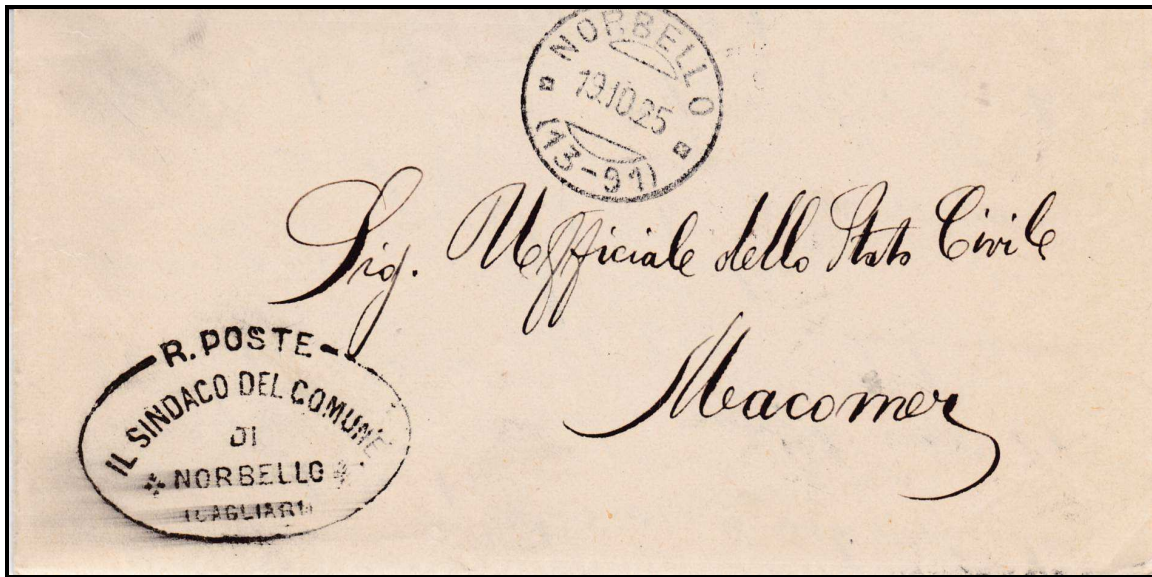 NORBELLO
19.10.25
(13-91)
Sig. Ufficiale dello Stato Civile
Macomer
R. POSTE
IL SINDACO DEL COMUNE
DI
NORBELLO
(CAGLIARI)